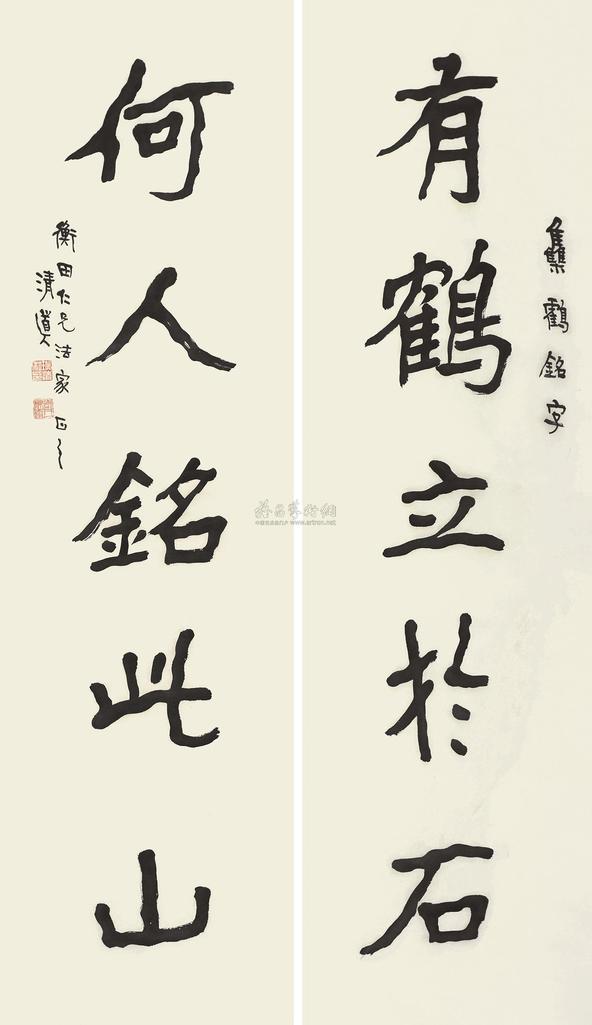 集鶴銘字
有鶴立於石
何人銘此山
衡田仁兄法家正之
清道人
www.artron.net